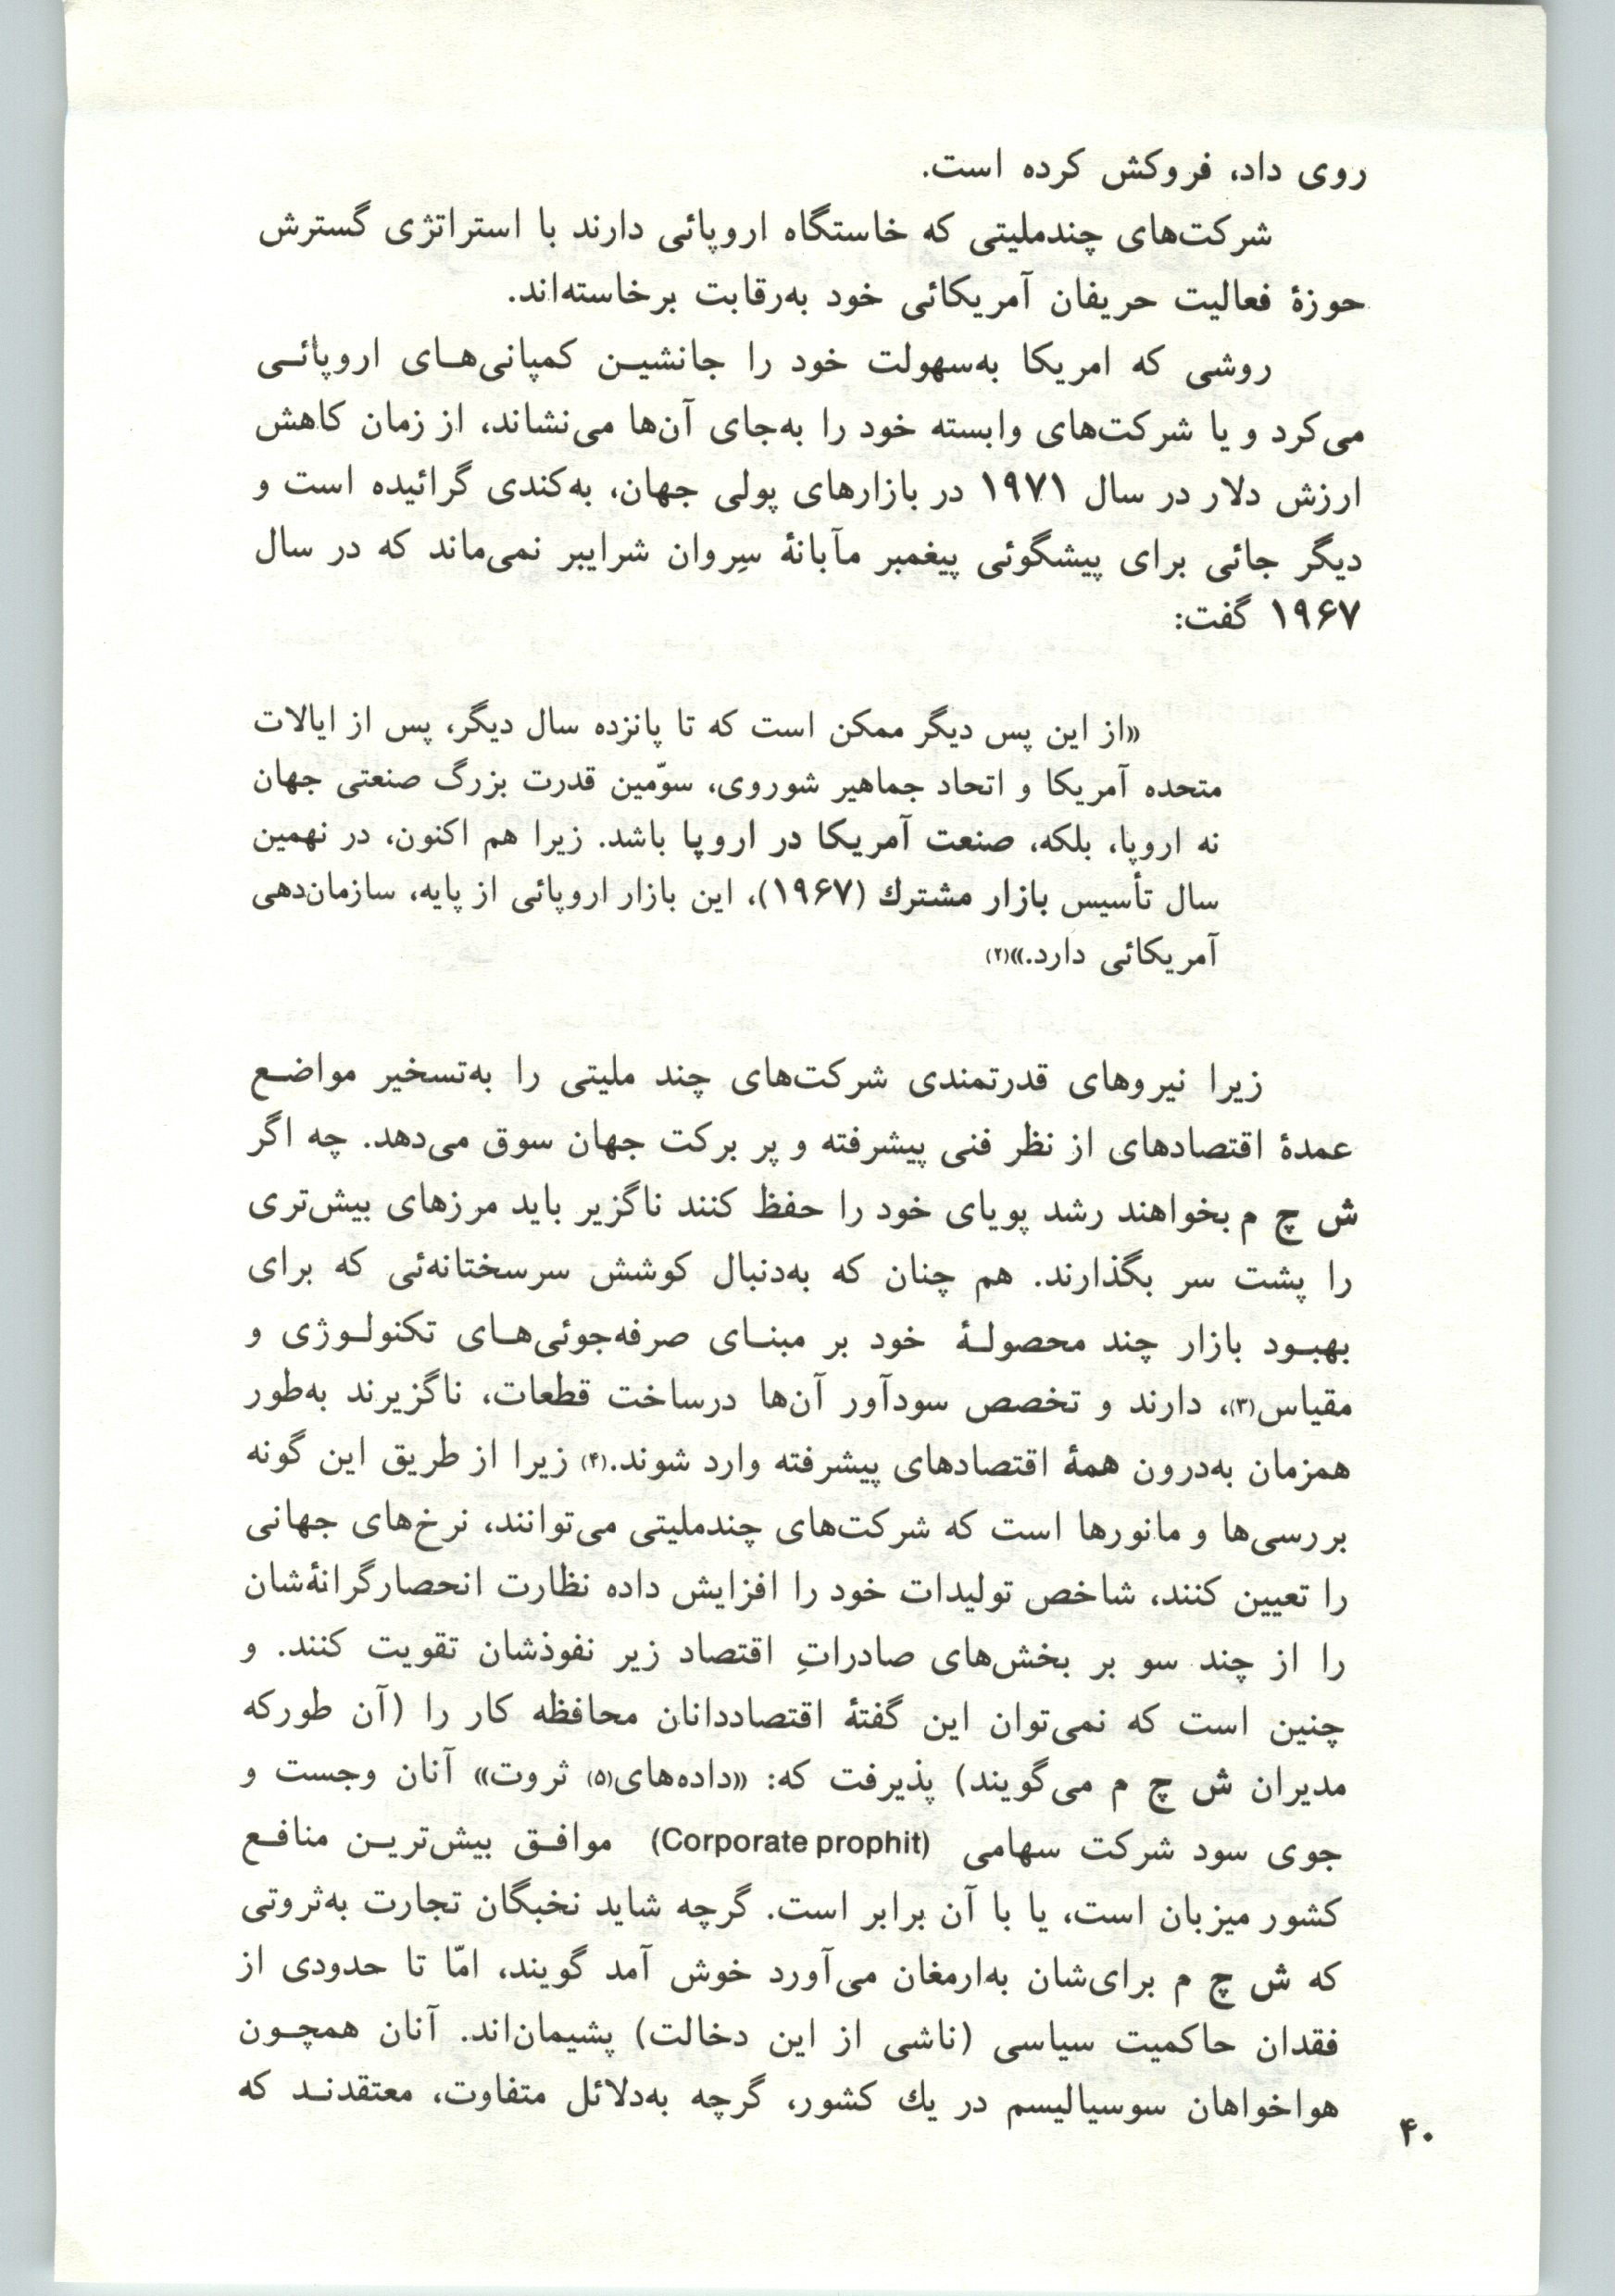 روی داد، فروکش کرده است.
شرکت‌های چندملیتی که خاستگاه اروپائی دارند با استراتژی گسترش
حوزهٔ فعالیت حریفان آمریکائی خود به‌رقابت برخاسته‌اند.
روشی که امریکا به‌سهولت خود را جانشیـن کمپانی‌هـای اروپائـی
می‌کرد و یا شرکت‌های وابسته خود را به‌جای آن‌ها می‌نشاند، از زمان کاهش
ارزش دلار در سال ۱۹۷۱ در بازارهای پولی جهان، به‌کندی گرائیده است و
دیگر جائی برای پیشگوئی پیغمبر مآبانهٔ سِروان شرایبر نمی‌ماند که در سال
۱۹۶۷ گفت:
«از این پس دیگر ممکن است که تا پانزده سال دیگر، پس از ایالات
متحده آمریکا و اتحاد جماهیر شوروی، سوّمین قدرت بزرگ صنعتی جهان
نه اروپا، بلکه، صنعت آمریکا در اروپا باشد. زیرا هم اکنون، در نهمین
سال تأسیس بازار مشترك (۱۹۶۷)، این بازار اروپائی از پایه، سازمان‌دهی
آمریکائی دارد.»(۲)
زیرا نیروهای قدرتمندی شرکت‌های چند ملیتی را به‌تسخیر مواضـع
عمدهٔ اقتصادهای از نظر فنی پیشرفته و پر برکت جهان سوق می‌دهد. چه اگر
ش چ م بخواهند رشد پویای خود را حفظ کنند ناگزیر باید مرزهای بیش‌تری
را پشت سر بگذارند. هم چنان که به‌دنبال کوشش سرسختانه‌ئی که برای
بهبـود بازار چند محصولـهٔ خود بر مبنـای صرفه‌جوئی‌هـای تکنولـوژی و
مقیاس(۳)، دارند و تخصص سودآور آن‌ها درساخت قطعات، ناگزیرند به‌طور
همزمان به‌درون همهٔ اقتصادهای پیشرفته وارد شوند.(۴) زیرا از طریق این گونه
بررسی‌ها و مانورها است که شرکت‌های چندملیتی می‌توانند، نرخ‌های جهانی
را تعیین کنند، شاخص تولیدات خود را افزایش داده نظارت انحصارگرانهٔ‌شان
را از چند سو بر بخش‌های صادراتِ اقتصاد زیر نفوذشان تقویت کنند. و
چنین است که نمی‌توان این گفتهٔ اقتصاددانان محافظه کار را (آن طورکه
مدیران ش چ م می‌گویند) پذیرفت که: «داده‌های(۵) ثروت» آنان وجست و
جوی سود شرکت سهامی (Corporate prophit) موافـق بیش‌تریـن منافـع
کشور میزبان است، یا با آن برابر است. گرچه شاید نخبگان تجارت به‌ثروتی
که ش چ م برای‌شان به‌ارمغان می‌آورد خوش آمد گویند، امّا تا حدودی از
فقدان حاکمیت سیاسی (ناشی از این دخالت) پشیمان‌اند. آنان همچـون
هواخواهان سوسیالیسم در یك کشور، گرچه به‌دلائل متفاوت، معتقدنـد که
۴۰